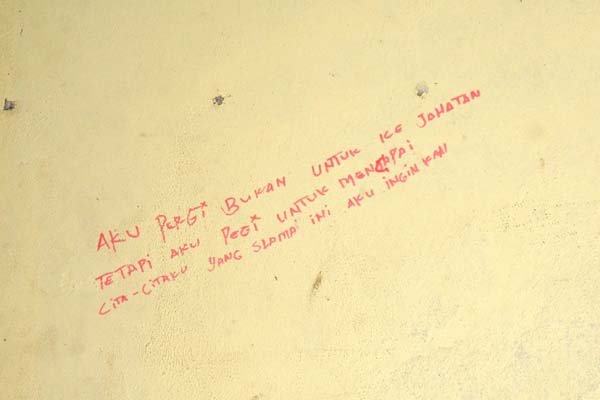 AKU PERGI BUKAN UNTUK KE JAHATAN
TETAPI AKU PEGI UNTUK MENCAPAI
CITA-CITAKU YANG SLAMAI INI AKU INGINKAN